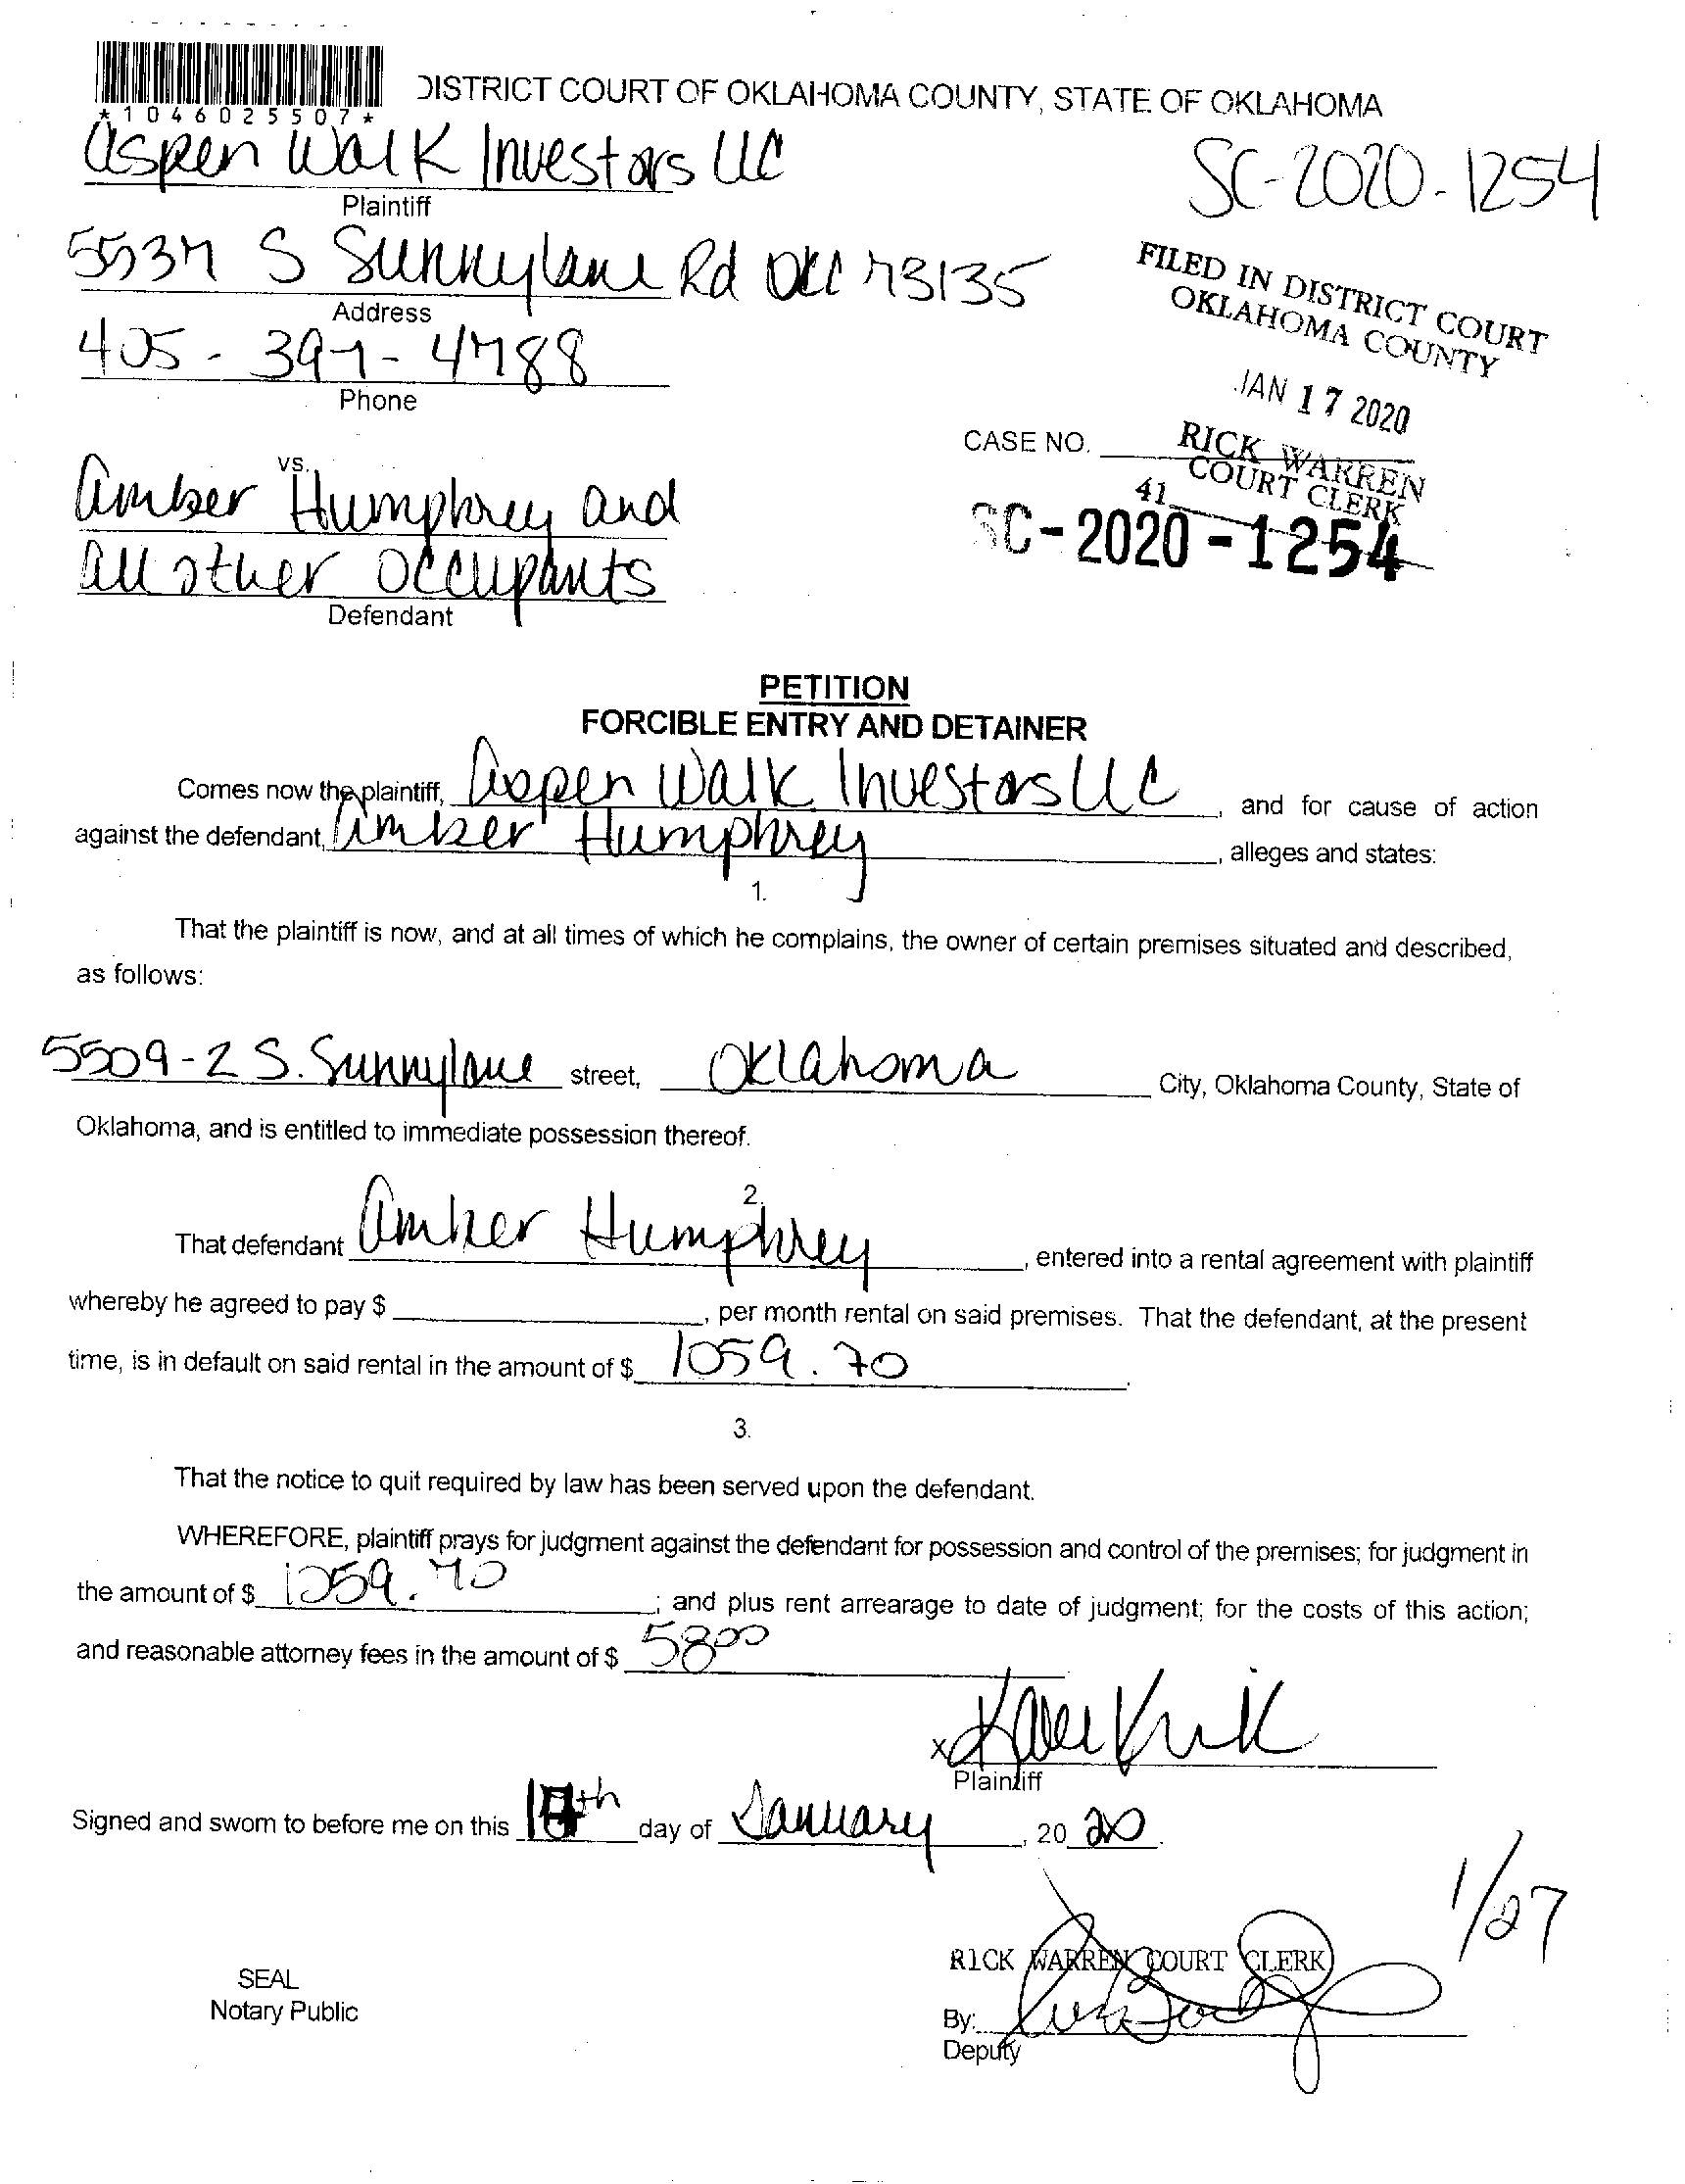 *1046025507*
DISTRICT COURT OF OKLAHOMA COUNTY, STATE OF OKLAHOMA
Aspen Walk Investors LLC
Plaintiff
SC-2020-1254
5537 S Sunnylane Rd OKC 73135
Address
FILED IN DISTRICT COURT
OKLAHOMA COUNTY
405-397-4788
Phone
JAN 17 2020
RICK WARREN
COURT CLERK
41
CASE NO.
SC-2020-1254
vs.
Amber Humphrey and
all other occupants
Defendant
PETITION
FORCIBLE ENTRY AND DETAINER
Comes now the plaintiff, Aspen Walk Investors LLC, and for cause of action
against the defendant, Amber Humphrey, alleges and states:
1.
That the plaintiff is now, and at all times of which he complains, the owner of certain premises situated and described,
as follows:
5509-2 S. Sunnylane street, Oklahoma City, Oklahoma County, State of
Oklahoma, and is entitled to immediate possession thereof.
2.
That defendant Amber Humphrey, entered into a rental agreement with plaintiff
whereby he agreed to pay $, per month rental on said premises. That the defendant, at the present
time, is in default on said rental in the amount of $ 1059.70.
3.
That the notice to quit required by law has been served upon the defendant.
WHEREFORE, plaintiff prays for judgment against the defendant for possession and control of the premises; for judgment in
the amount of $ 1059.70; and plus rent arrearage to date of judgment; for the costs of this action;
and reasonable attorney fees in the amount of $ 5800
x
Plaintiff
Signed and sworn to before me on this 17th day of January, 2020.
1/27
RICK WARREN COURT CLERK
SEAL
Notary Public
By:
Deputy